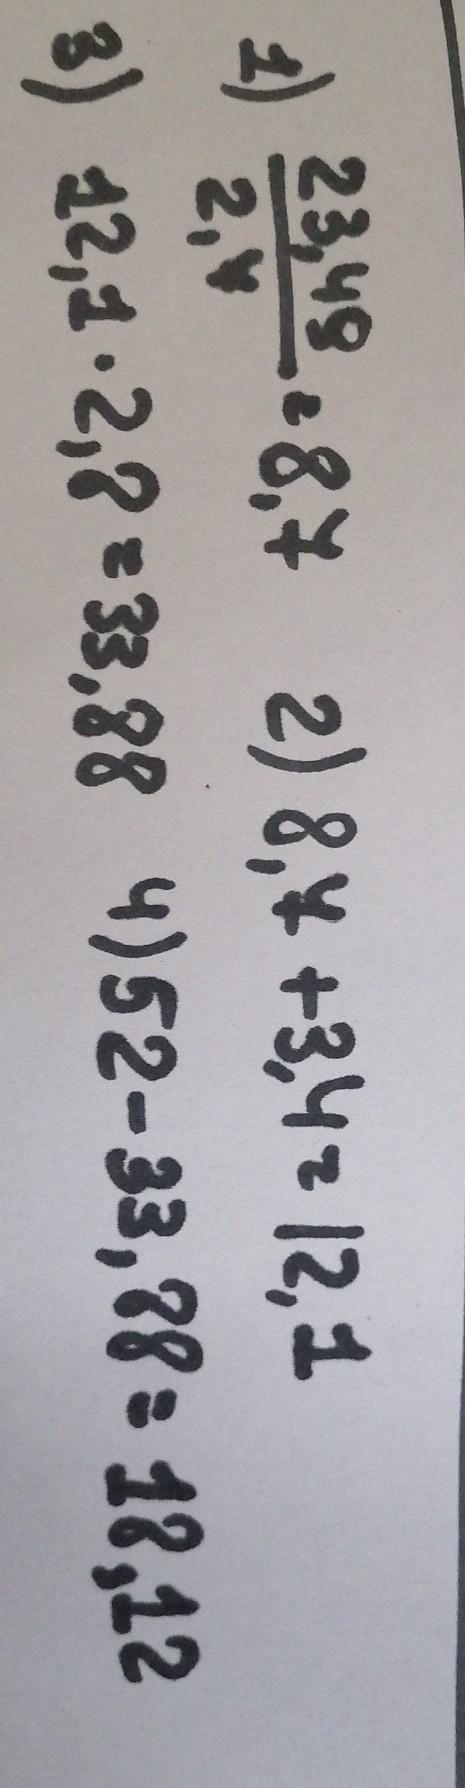 1) 23,49 / 2,7 = 8,7 2) 8,7 + 3,4 = 12,1
3) 12,1 · 2,8 = 33,88 4) 52 - 33,88 = 18,12